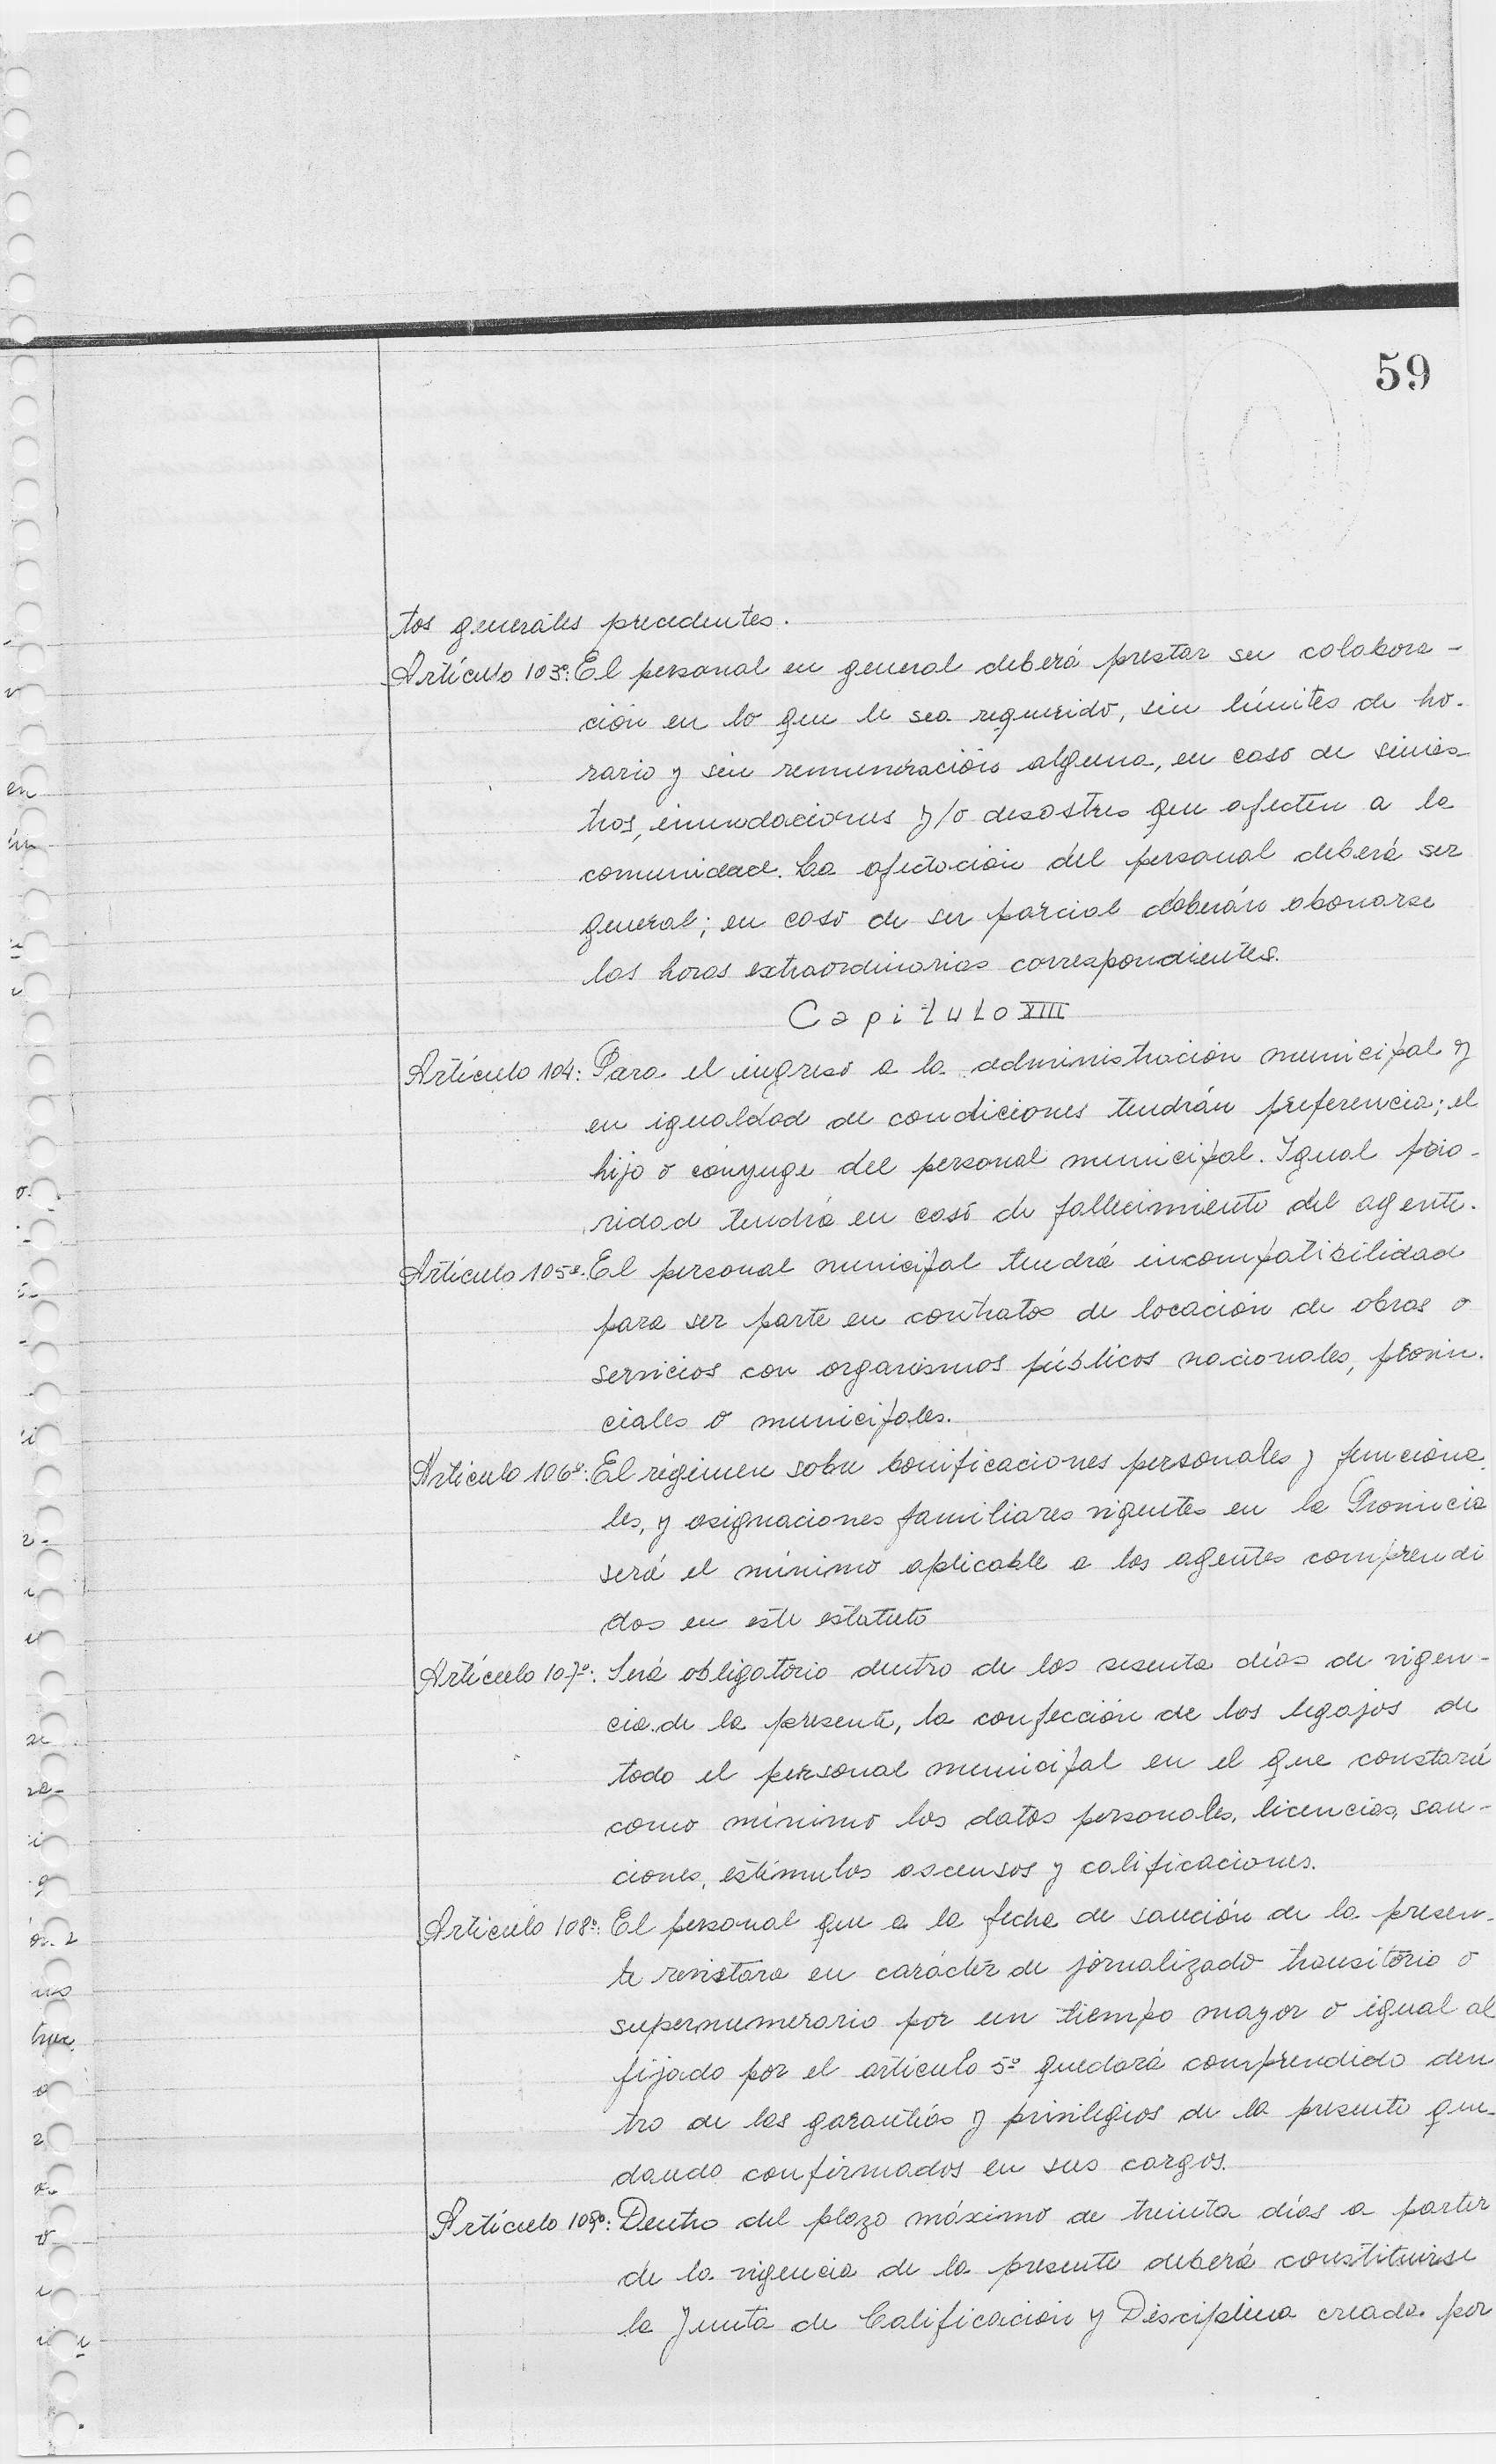 59
tos generales precedentes.
Artículo 103º: El personal en general deberá prestar su colabora-
ción en lo que le sea requerido, sin límites de ho-
rario y sin remuneración alguna, en caso de sinies-
tros, inundaciones y/o desastres que afecten a la
comunidad. La afectación del personal deberá ser
general; en caso de ser parcial deberán abonarse
las horas extraordinarias correspondientes.
Capitulo XIII
Artículo 104: Para el ingreso a la administración municipal y
en igualdad de condiciones tendrán preferencia; el
hijo o conyuge del personal municipal. Igual prio-
ridad tendrá en caso de fallecimiento del agente.
Artículo 105º: El personal municipal tendrá incompatibilidad
para ser parte en contratos de locación de obras o
servicios con organismos públicos nacionales, provin-
ciales o municipales.
Artículo 106º: El régimen sobre bonificaciones personales y funciona-
les, y asignaciones familiares vigentes en la Provincia
será el mínimo aplicable a los agentes comprendi
dos en este estatuto
Artículo 107º: Será obligatorio dentro de los sesenta días de vigen-
cia de la presente, la confección de los legajos de
todo el personal municipal en el que constará
como mínimo los datos personales, licencias, san-
ciones, estímulos ascensos y calificaciones.
Artículo 108º: El personal que a la fecha de sanción de la presen-
te revistara en carácter de jornalizado transitorio o
supernumerario por un tiempo mayor o igual al
fijado por el artículo 5º quedará comprendido den
tro de las garantías y privilegios de la presente que-
dando confirmados en sus cargos.
Artículo 109º: Dentro del plazo máximo de treinta días a partir
de la vigencia de la presente deberá constituirse
la Junta de Calificación y Disciplina creada por